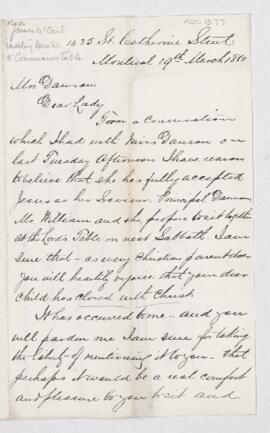 Rev
James McCaul
inviting
to Communion Table
1435 St. Catherine Street
Montreal 19th March 1880
Mrs Dawson
Dear Lady
From a conversation
which I had with Miss Dawson on
last Tuesday Afternoon I have reason
to believe that she has fully accepted
Jesus as her Saviour. Principal Dawson
Mr. William and she propose to sit together
at the Lord's Table on next Sabbath. I am
sure that - as every Christian parent does
you will heartily rejoice that your dear
child has closed with Christ.
It has occurred to me - and you
will pardon me I am sure for taking
the liberty of mentioning it to you - that
perhaps it would be a real comfort
and pleasure to you to sit and